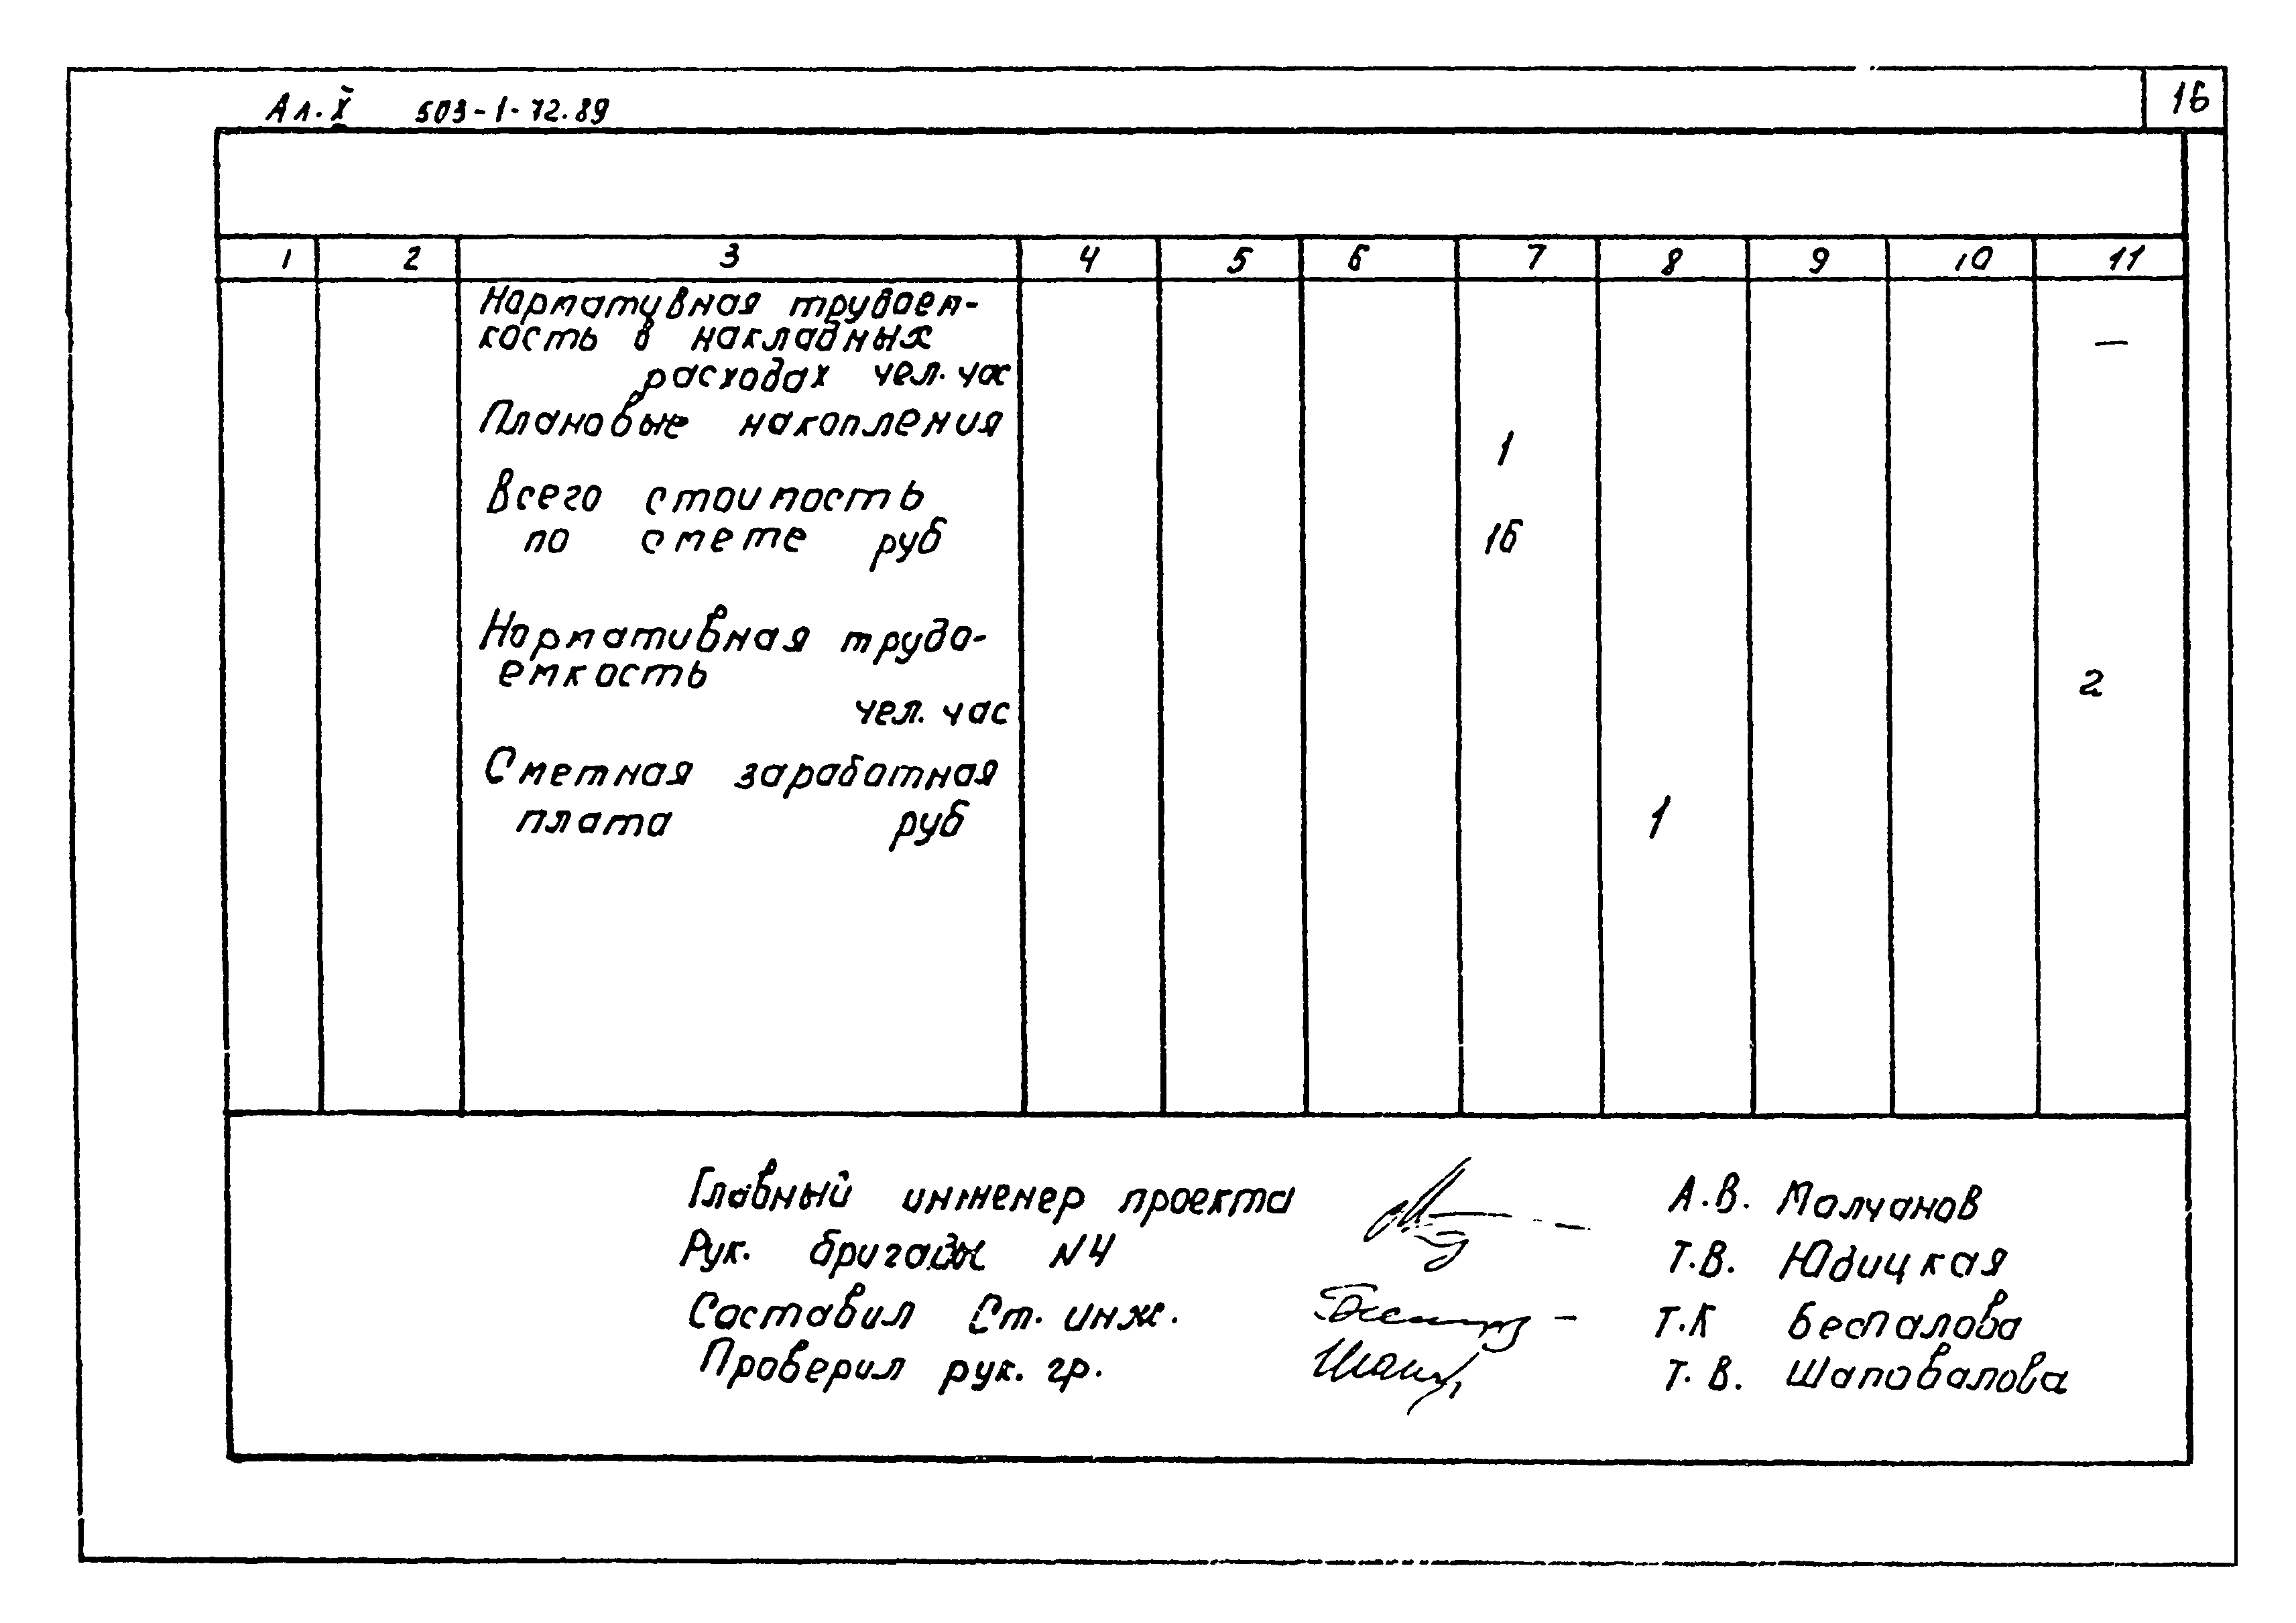 Ал. X 503-1-72.89 16
1 2 3 4 5 6 7 8 9 10 11
Нормативная трудоем-
кость в накладных —
расходах чел. час
Плановые накопления 1
Всего стоимость
по смете руб 16
Нормативная трудо-
емкость 2
чел. час
Сметная заработная
плата руб 1
Главный инженер проекта А.В. Молчанов
Рук. бригады N4 Т.В. Юдицкая
Составил Ст. инж. Т.К Беспалова
Проверил рук. гр. Т.В. Шаповалова